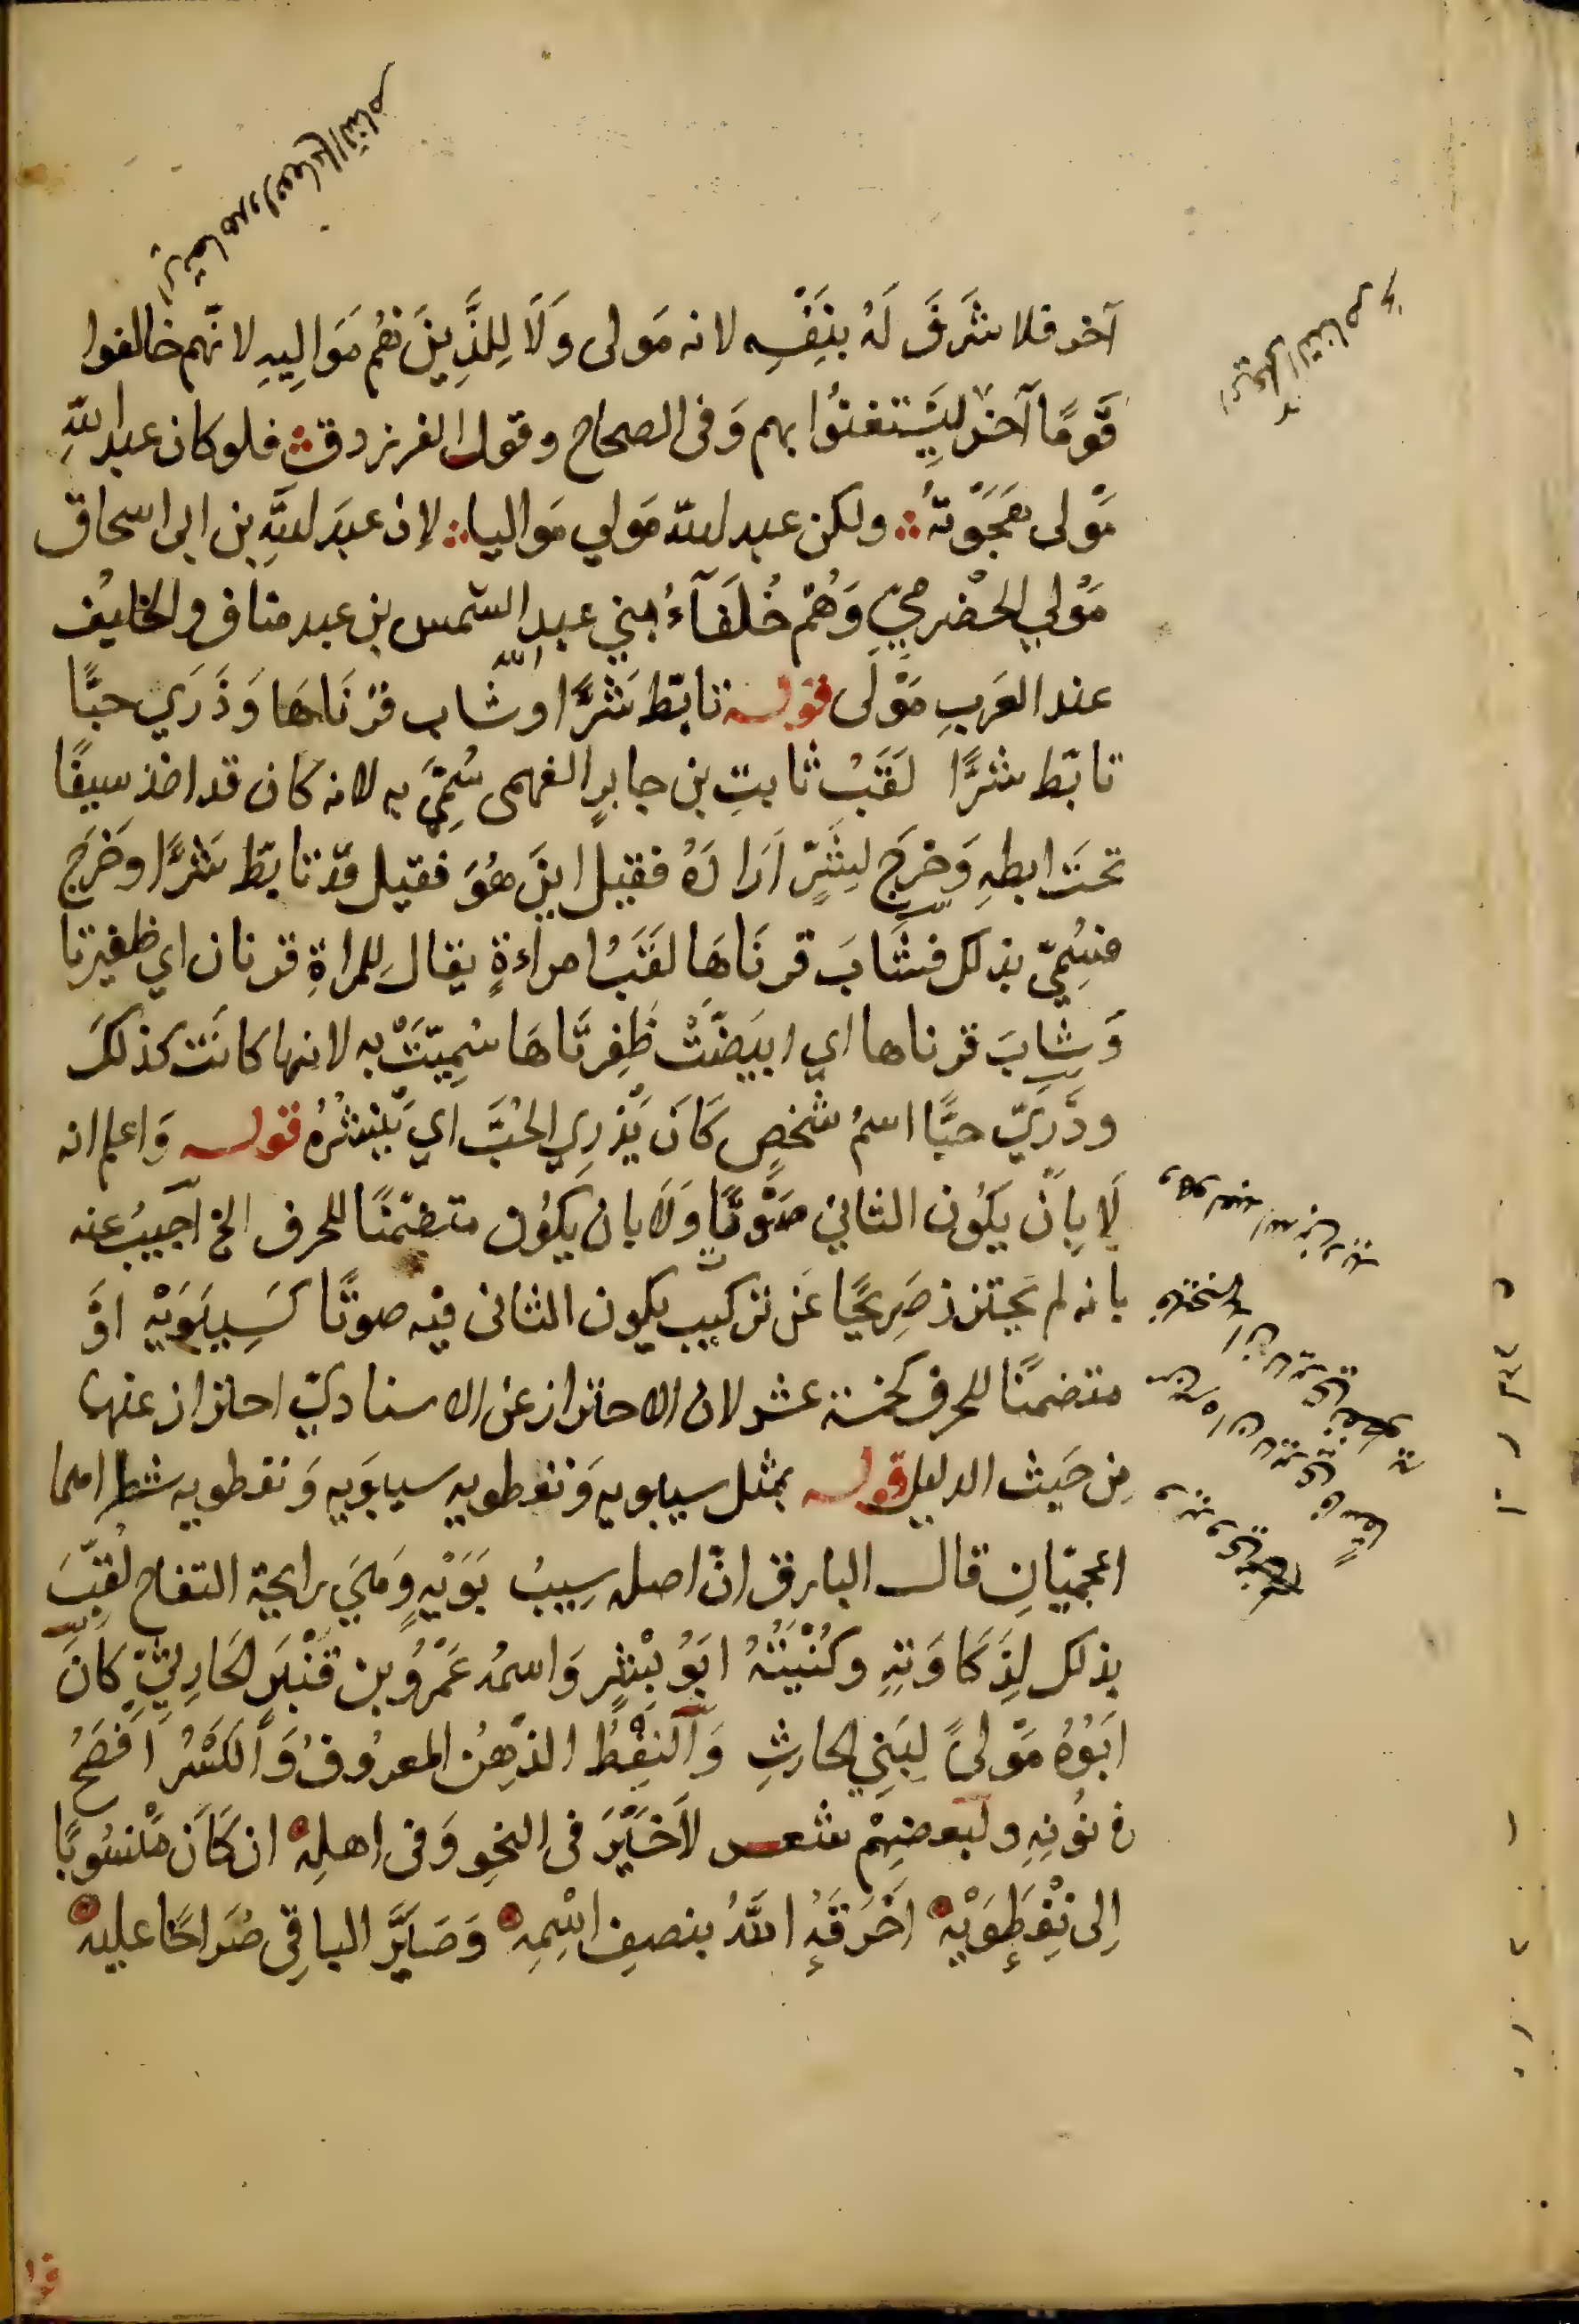 آخر فلا شَرَفَ لَهُ بنَفْسِه لانه مَولى وَلَا لِلَّذِينَ هُم مَوَالِيهِ لانّهم خالفوا
قَومًا آخر لِيَسْتغنوُا بهم وَفى الصحاح وقول الفرزدق فلو كان عبد اللّهِ
مَوْلى هَجَوْتهُ ولكن عبد اللّه مَولي مَواليا لان عبدَ اللَّهِ بن ابى اسحاق
مَوْلي الحضْرميّ وَهُم حُلَفَآءُ بني عبدِ الشمس بن عبد مناف والحليف
عند العَربِ مَوْلى قولـه تابّط شرًّا وشاب قرْنَاهَا وَذَرَي حبًّا
تابّط شرًّا لَقَبُ ثابتِ بن جابرٍ الفهمى سُمِّيَ به لانه كان قد اخذ سيفًا
تحتَ ابطهِ وَخرَجَ لِشَرٍّ اَرَادَهُ فقيل اينَ هُوَ فقيل قدْ تابّط شرًّا وخَرَجَ
فسُمِّيَ بذلك فشَابَ قرنَاهَا لقَبُ امراءةٍ يقال لِلمراةِ قرنان اي ظفيرتا
وَشابَ قرناها اي ابيَضّتْ ظَفِرتَاهَا سُمِيّتْ به لانها كانَت كذلكَ
وذَرَيّ حبًّا اسمُ شخصٍ كَانَ يَذرِي الحُبَّ اي يَنْشُرُهُ قولـه وَاعلم انه
لَا بِاَنْ يَكُون الثاني صَوْتًا وَلَا بان يكُون متضمّنًا للحرف الخ اُجيبُ عنه
بانه لم يَحترز صَرِيحًا عَن تركيبٍ يكون الثانى فيه صوتًا كَسِيبَوَيْهِ اوْ
متضمنًا للحرف كخمسة عشر لان الاحتراز عن الاسناديّ احتراز عنها
مِن حَيث الدليل قولـه بمثل سيبويه وَنفطويه سيبوَيهِ وَنفطويه اسما
اعجميّانِ قالـ البارق انّ اصله سِيبُ بَوَيْهِ وَهيَ رايحة التفاح لُقبَّ
بذلك لِذَكَاوَتهِ وكُنْيَتُهُ ابَوُ بِشْرٍ وَاسمُه عَمْرُو بن قَنْبَر الحَارِثيّ كَانَ
ابَوُهُ مَوْلىً لِبَنِي الحارثِ وَالنِفْطُ الدّهِنُ المعرُوفُ وَالكَسْرُ اَفْصَحُ
فى نوُنِهِ ولبعضِهِمْ شعـر لاَخَيْرَ فى النحوِ وَفى اهلِه ان كَانَ مَنْسُوبًا
اِلى نِفْطَوَيْهِ اَحْرَقَهُ اللَّهُ بنصفِ اسْمِهِ وَصَيَّرَ الباقِي صُرَاخًا عليه